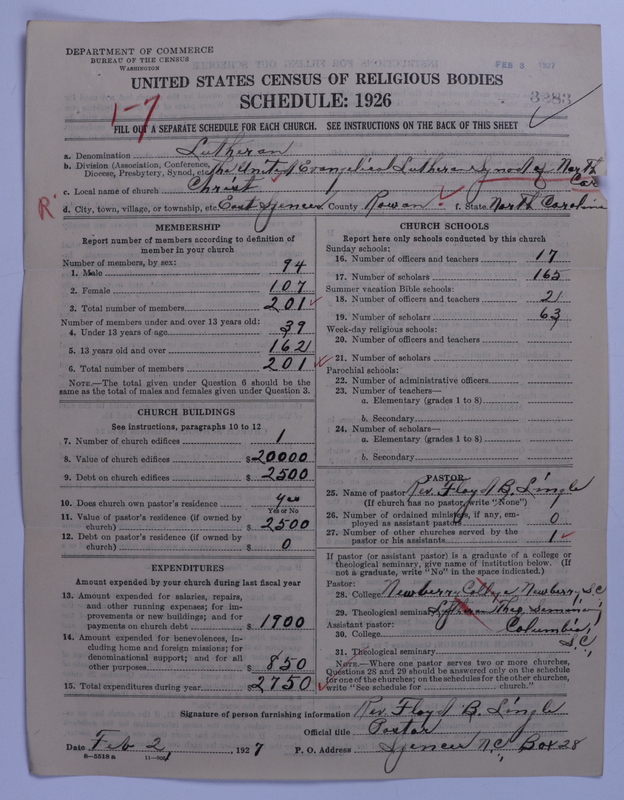 DEPARTMENT OF COMMERCE
BUREAU OF THE CENSUS
WASHINGTON
FEB 3 1927
UNITED STATES CENSUS OF RELIGIOUS BODIES
SCHEDULE: 1926
3283
1-7
FILL OUT A SEPARATE SCHEDULE FOR EACH CHURCH. SEE INSTRUCTIONS ON THE BACK OF THIS SHEET
a. Denomination Lutheran
b. Division (Association, Conference, Diocese, Presbytery, Synod, etc. The United Evangelical Lutheran Synod of North Car
c. Local name of church Christ
R
d. City, town, village, or township, etc. East Spencer County Rowan f. State North Carolina
MEMBERSHIP
Report number of members according to definition of
member in your church
Number of members, by sex:
1. Male 94
2. Female 107
3. Total number of members 201
Number of members under and over 13 years old:
4. Under 13 years of age 39
5. 13 years old and over 162
6. Total number of members 201
NOTE.—The total given under Question 6 should be the
same as the total of males and females given under Question 3.
CHURCH BUILDINGS
See instructions, paragraphs 10 to 12
7. Number of church edifices 1
8. Value of church edifices $20000
9. Debt on church edifices $2500
10. Does church own pastor's residence yes
Yes or No
11. Value of pastor's residence (if owned by
church) $2500
12. Debt on pastor's residence (if owned by
church) $0
EXPENDITURES
Amount expended by your church during last fiscal year
13. Amount expended for salaries, repairs,
and other running expenses; for im-
provements or new buildings; and for
payments on church debt $1900
14. Amount expended for benevolences, in-
cluding home and foreign missions; for
denominational support; and for all
other purposes $850
15. Total expenditures during year $2750
CHURCH SCHOOLS
Report here only schools conducted by this church
Sunday schools:
16. Number of officers and teachers 17
17. Number of scholars 165
Summer vacation Bible schools:
18. Number of officers and teachers 21
19. Number of scholars 63
Week-day religious schools:
20. Number of officers and teachers
21. Number of scholars
Parochial schools:
22. Number of administrative officers
23. Number of teachers—
a. Elementary (grades 1 to 8)
b. Secondary
24. Number of scholars—
a. Elementary (grades 1 to 8)
b. Secondary
PASTOR
25. Name of pastor Rev. Floyd B. Lingle
(If church has no pastor, write "None")
26. Number of ordained ministers, if any, em-
ployed as assistant pastors 0
27. Number of other churches served by the
pastor or his assistants 1
If pastor (or assistant pastor) is a graduate of a college or
theological seminary, give name of institution below. (If
not a graduate, write "No" in the space indicated.)
Pastor:
28. College Newberry College, Newberry, S.C.
29. Theological seminary Lutheran Theo. Seminary,
Assistant pastor: Columbia,
30. College S.C.,
31. Theological seminary
NOTE.—Where one pastor serves two or more churches,
Questions 28 and 29 should be answered only on the schedule
for one of the churches; on the schedules for the other churches,
write "See schedule for church."
Signature of person furnishing information Rev. Floyd B. Lingle
Official title Pastor
Date Feb 2, 1927 P. O. Address Spencer N.C., Box 28
8—5518a